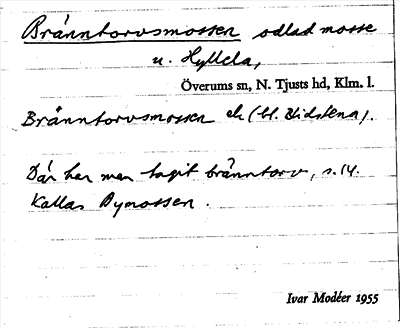 Bränntorvsmossen odlad mosse
u. Hyllela,
Överums sn, N. Tjusts hd, Klm. l.
Bränntorvsmossen ek (bl. Blidstena).
Där har man tagit bränntorv, s. 14.
Kallas Bymossen.
Ivar Modéer 1955